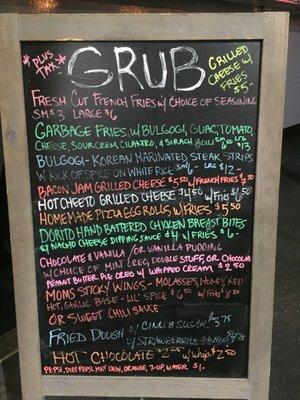 *PLUS TAX*
GRUB
GRILLED CHEESE w/ FRIES $5
FRESH CUT FRENCH FRIES w/ CHOICE OF SEASONING
SM $3 LARGE $6
GARBAGE FRIES, w/ BULGOGI, GUAC, TOMATO
CHEESE, SOUR CREAM, CILANTRO, & SIRACHA AOLI SM $6 LRG $13
BULGOGI - KOREAN MARINATED STEAK STRIPS
w/ KICK OF SPICE ON WHITE RICE SM $6 LRG $13
BACON JAM GRILLED CHEESE $5.50 w/ FRENCH FRIES
HOT CHEETO GRILLED CHEESE $4.50 w/ FRIES
HOMEMADE PIZZA EGG ROLLS w/ FRIES $5.50
DORITO HAND BATTERED CHICKEN BREAST BITES
w/ NACHO CHEESE DIPPING SAUCE $4 w/ FRIES $6
CHOCOLATE & VANILLA / OR VANILLA PUDDING
w/ CHOICE OF MINT OREO, DOUBLE STUFF, OR CHOCOLATE
PEANUT BUTTER PIE OREO w/ WHIPPED CREAM $2.50
MOMS STICKY WINGS - MOLASSES, HONEY, RED
HOT, GARLIC BASE - LIL' SPICE $6.50 w/ FRIES
OR SWEET CHILI SAUCE
FRIED DOUGH w/ CINN & SUGAR
w/ STRAWBERRIES
HOT CHOCOLATE w/ WHIP $2.50
PEPSI, DIET PEPSI, MNT DEW, ORANGE, 7-UP, WATER $1-